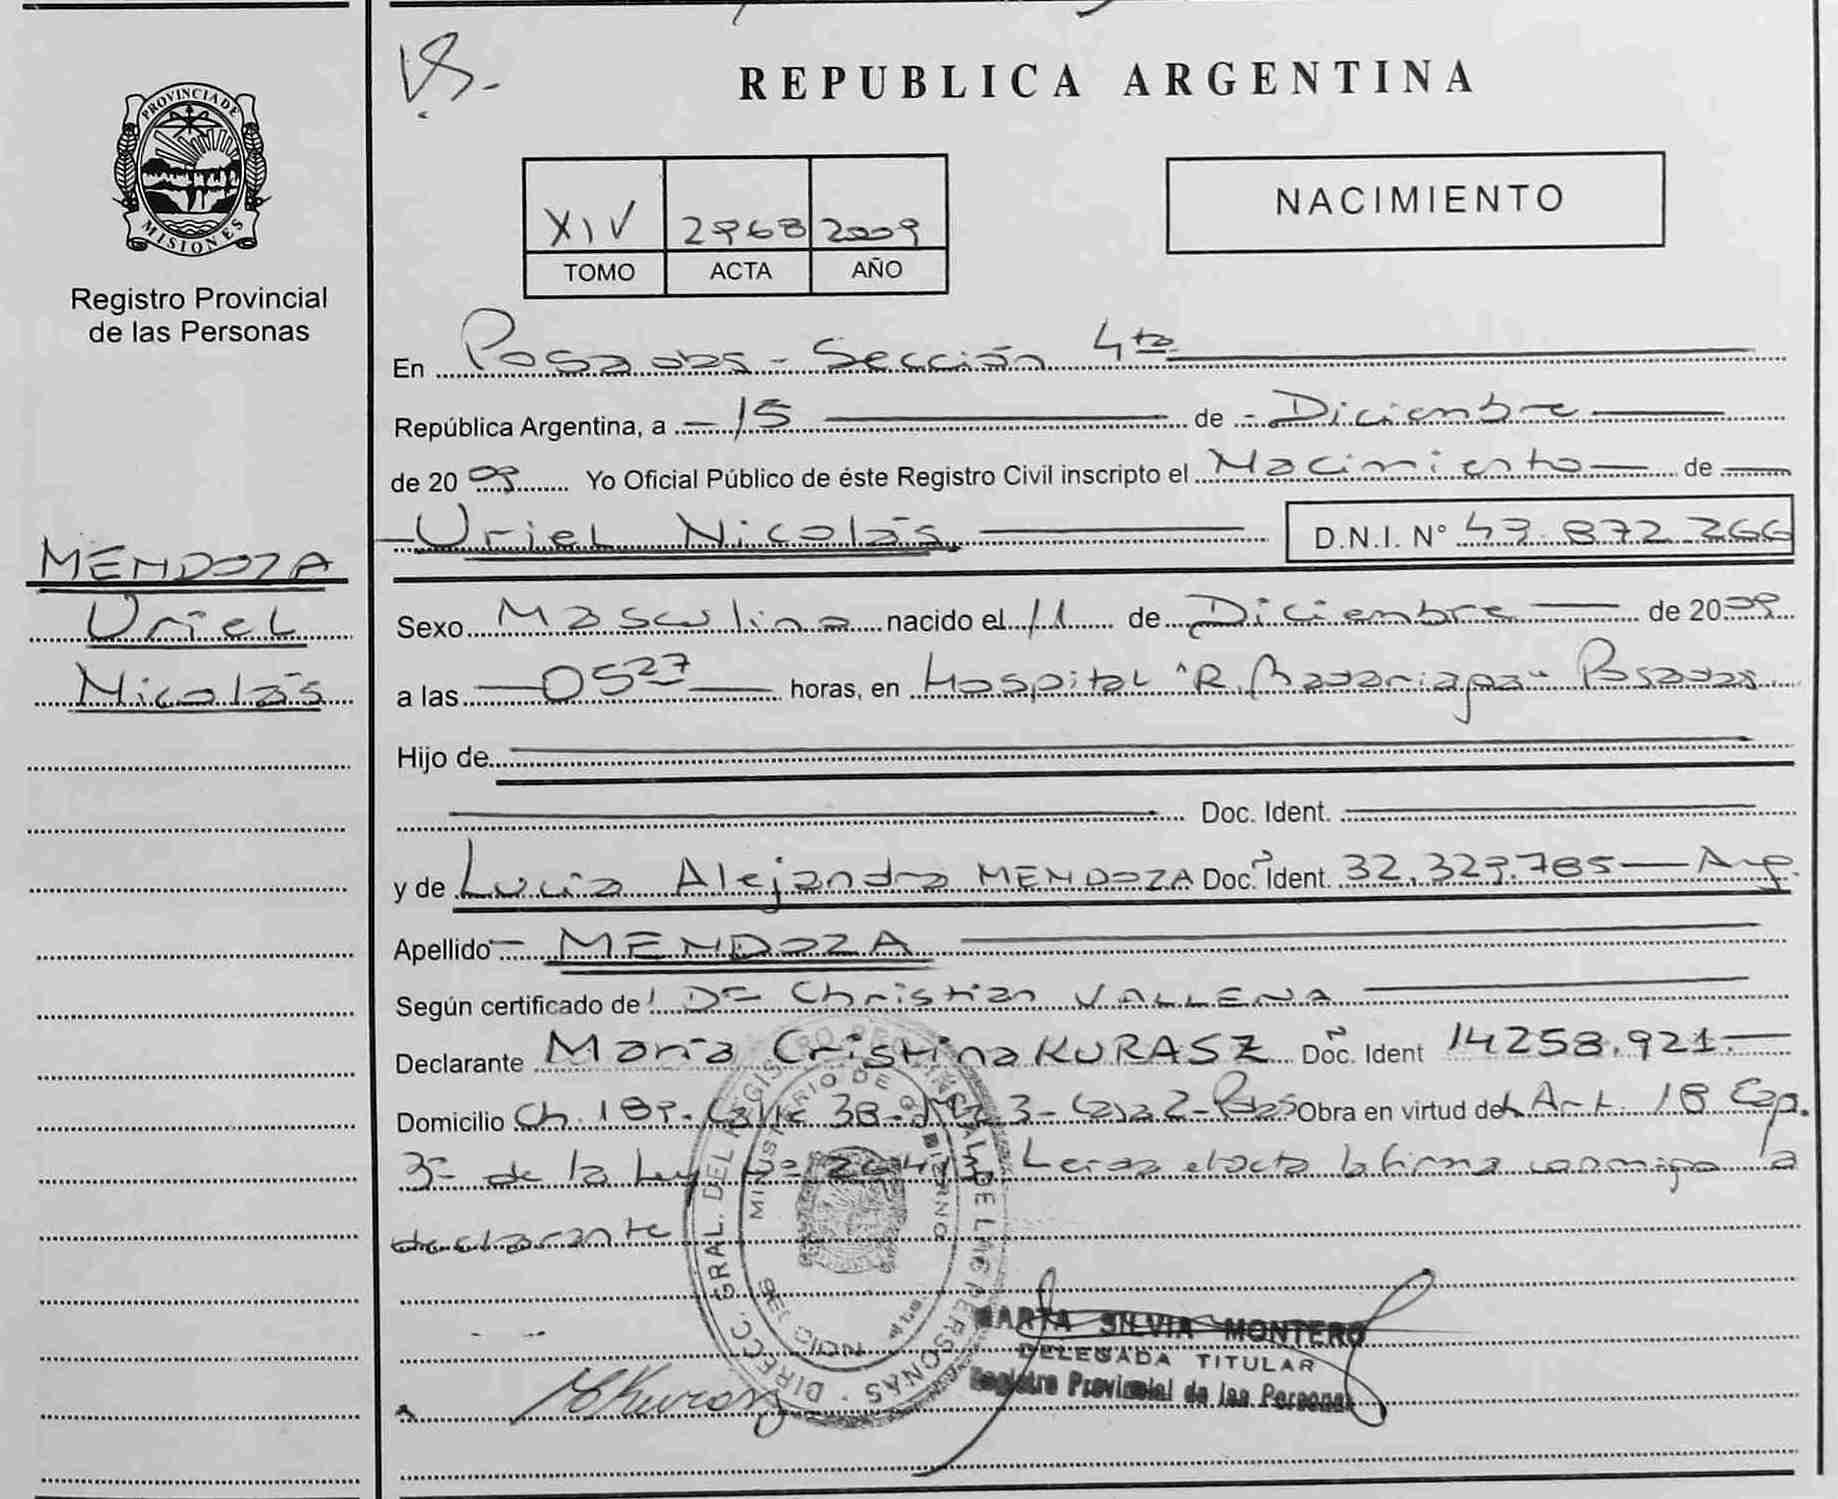 VS.-
REPUBLICA ARGENTINA
PROVINCIA DE
MISIONES
Registro Provincial
de las Personas
XIV 2968 2009
TOMO ACTA AÑO
NACIMIENTO
En Posadas - Sección 4ta
República Argentina, a - 15 de - Diciembre
de 2009 Yo Oficial Público de éste Registro Civil inscripto el Nacimiento de
Uriel Nicolás D.N.I. Nº 872.266
MENDOZA
Uriel
Nicolás
Sexo Masculino nacido el 11 de Diciembre de 2009
a las 0527 horas, en Hospital "R. Madariaga" Posadas
Hijo de
Doc. Ident.
y de Lucía Alejandra MENDOZA Doc. Ident. 32.329.785 - Arg.
Apellido - MENDOZA
Según certificado de Dr Christian VALLENA
Declarante María Cristina KURASZ Doc. Ident 14258.921.-
Domicilio Ch. 189 - Calle 38 - Mz 3 - Casa 2 - Pdas Obra en virtud del Art. 18 Cap.
3º de la Ley Nº Leída el acta la firma conmigo la
declarante
DIRECC. GRAL. DEL REGISTRO PROVINCIAL DE LAS PERSONAS
MINISTERIO DE GOBIERNO
MARTA SILVIA MONTERO
DELEGADA TITULAR
Registro Provincial de las Personas